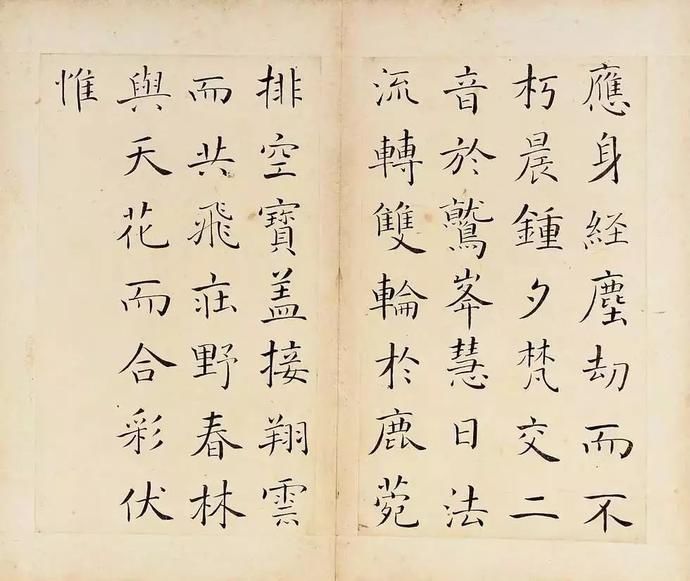 應身経塵劫而不
朽晨鍾夕梵交二
音於鷲峯慧日法
流轉雙輪於鹿菀
排空寶盖接翔雲
而共飛莊野春林
與天花而合彩伏
惟